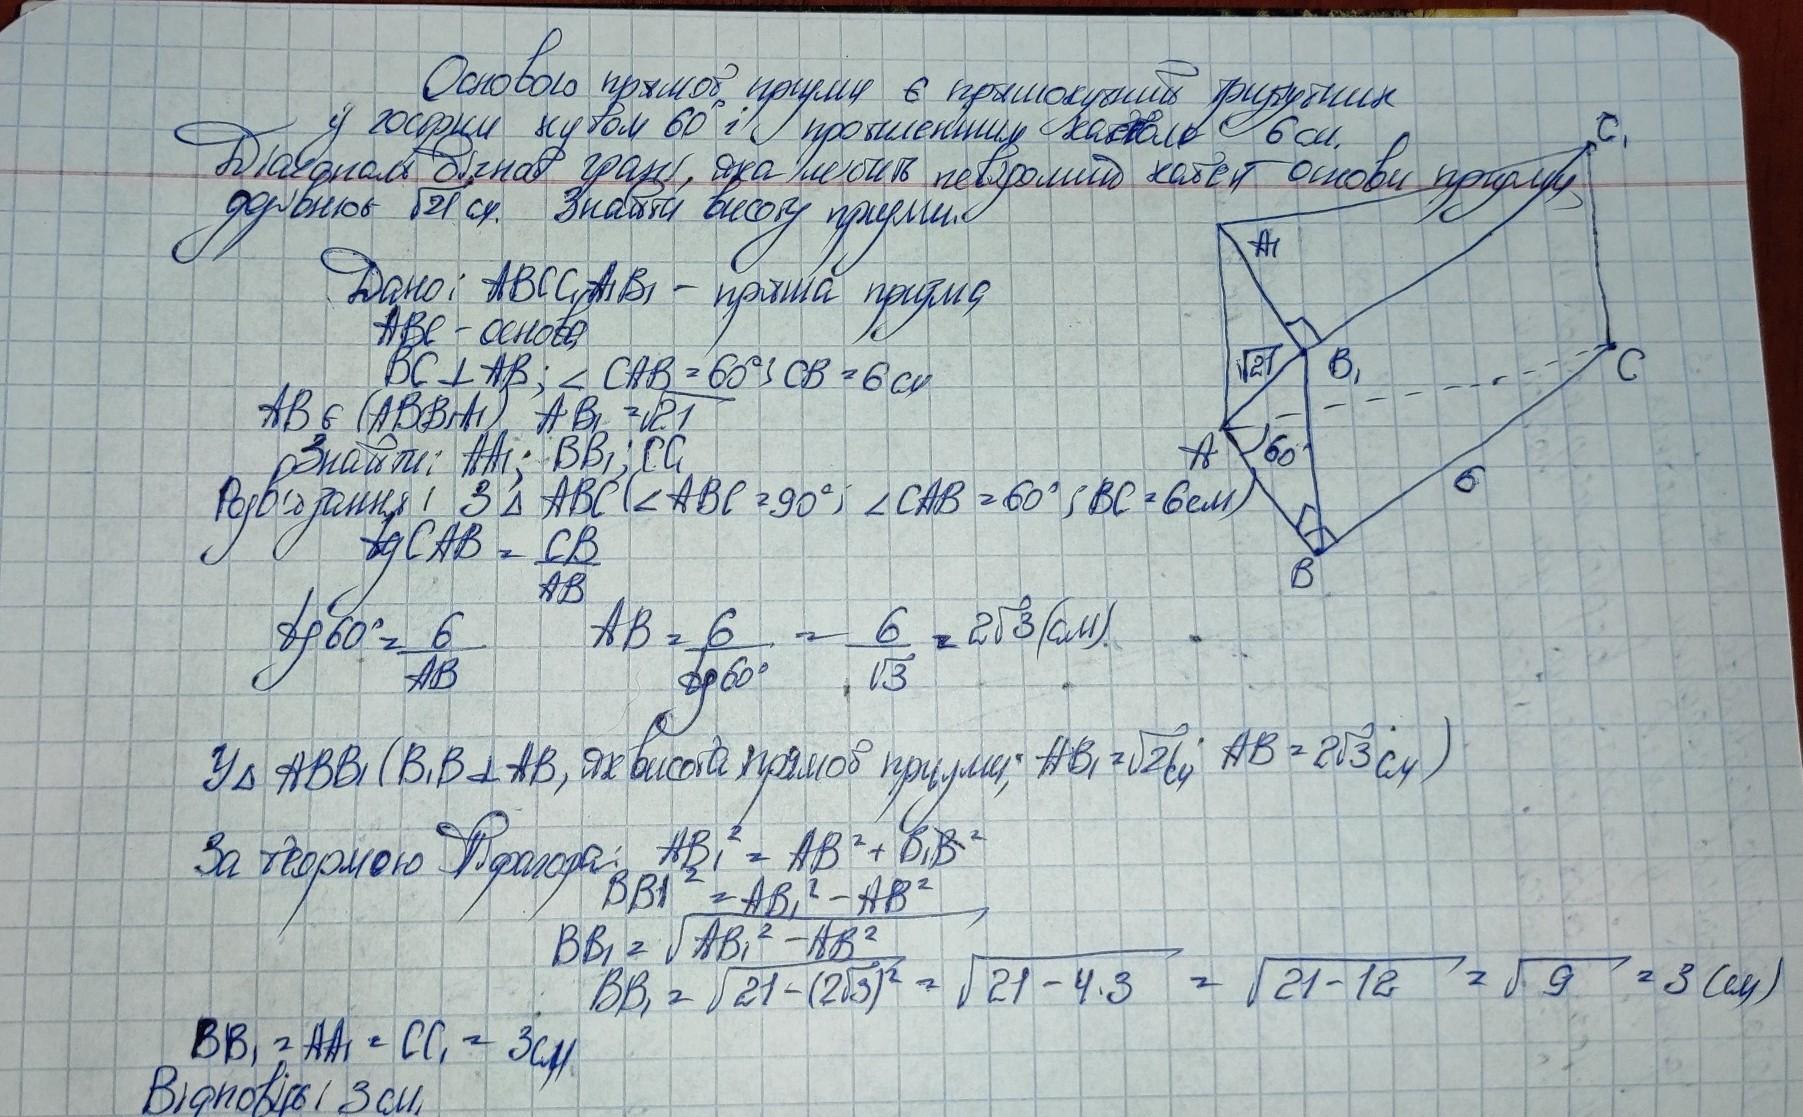 Основою прямої призми є прямокутний трикутник
у гострим кутом 60° і протилежним катетом 6 см.
Діагональ бічної грані, яка містить невідомий катет основи призми
дорівнює √21 см. Знайти висоту призми.
Дано: ABCC₁A₁B₁ - пряма призма
ABC - основа
BC ⊥ AB; ∠CAB = 60°; CB = 6 см
AB ∈ (ABB₁A₁) AB₁ = √21
Знайти: AA₁; BB₁; CC₁
Розв'язання: З △ ABC (∠ABC = 90°; ∠CAB = 60°; BC = 6 см)
tg CAB = CB/AB
tg 60° = 6/AB AB = 6/tg 60° = 6/√3 = 2√3 (см).
У △ ABB₁ (B₁B ⊥ AB, як висота прямої призми; AB₁ = √21 см; AB = 2√3 см)
За теоремою Піфагора: AB₁² = AB² + B₁B²
BB1² = AB₁² - AB²
BB₁ = √(AB₁² - AB²)
BB₁ = √(21 - (2√3)²) = √(21 - 4·3) = √(21 - 12) = √9 = 3 (см)
BB₁ = AA₁ = CC₁ = 3 см
Відповідь: 3 см.
C₁
A₁
√21
B₁
C
A
60°
6
B